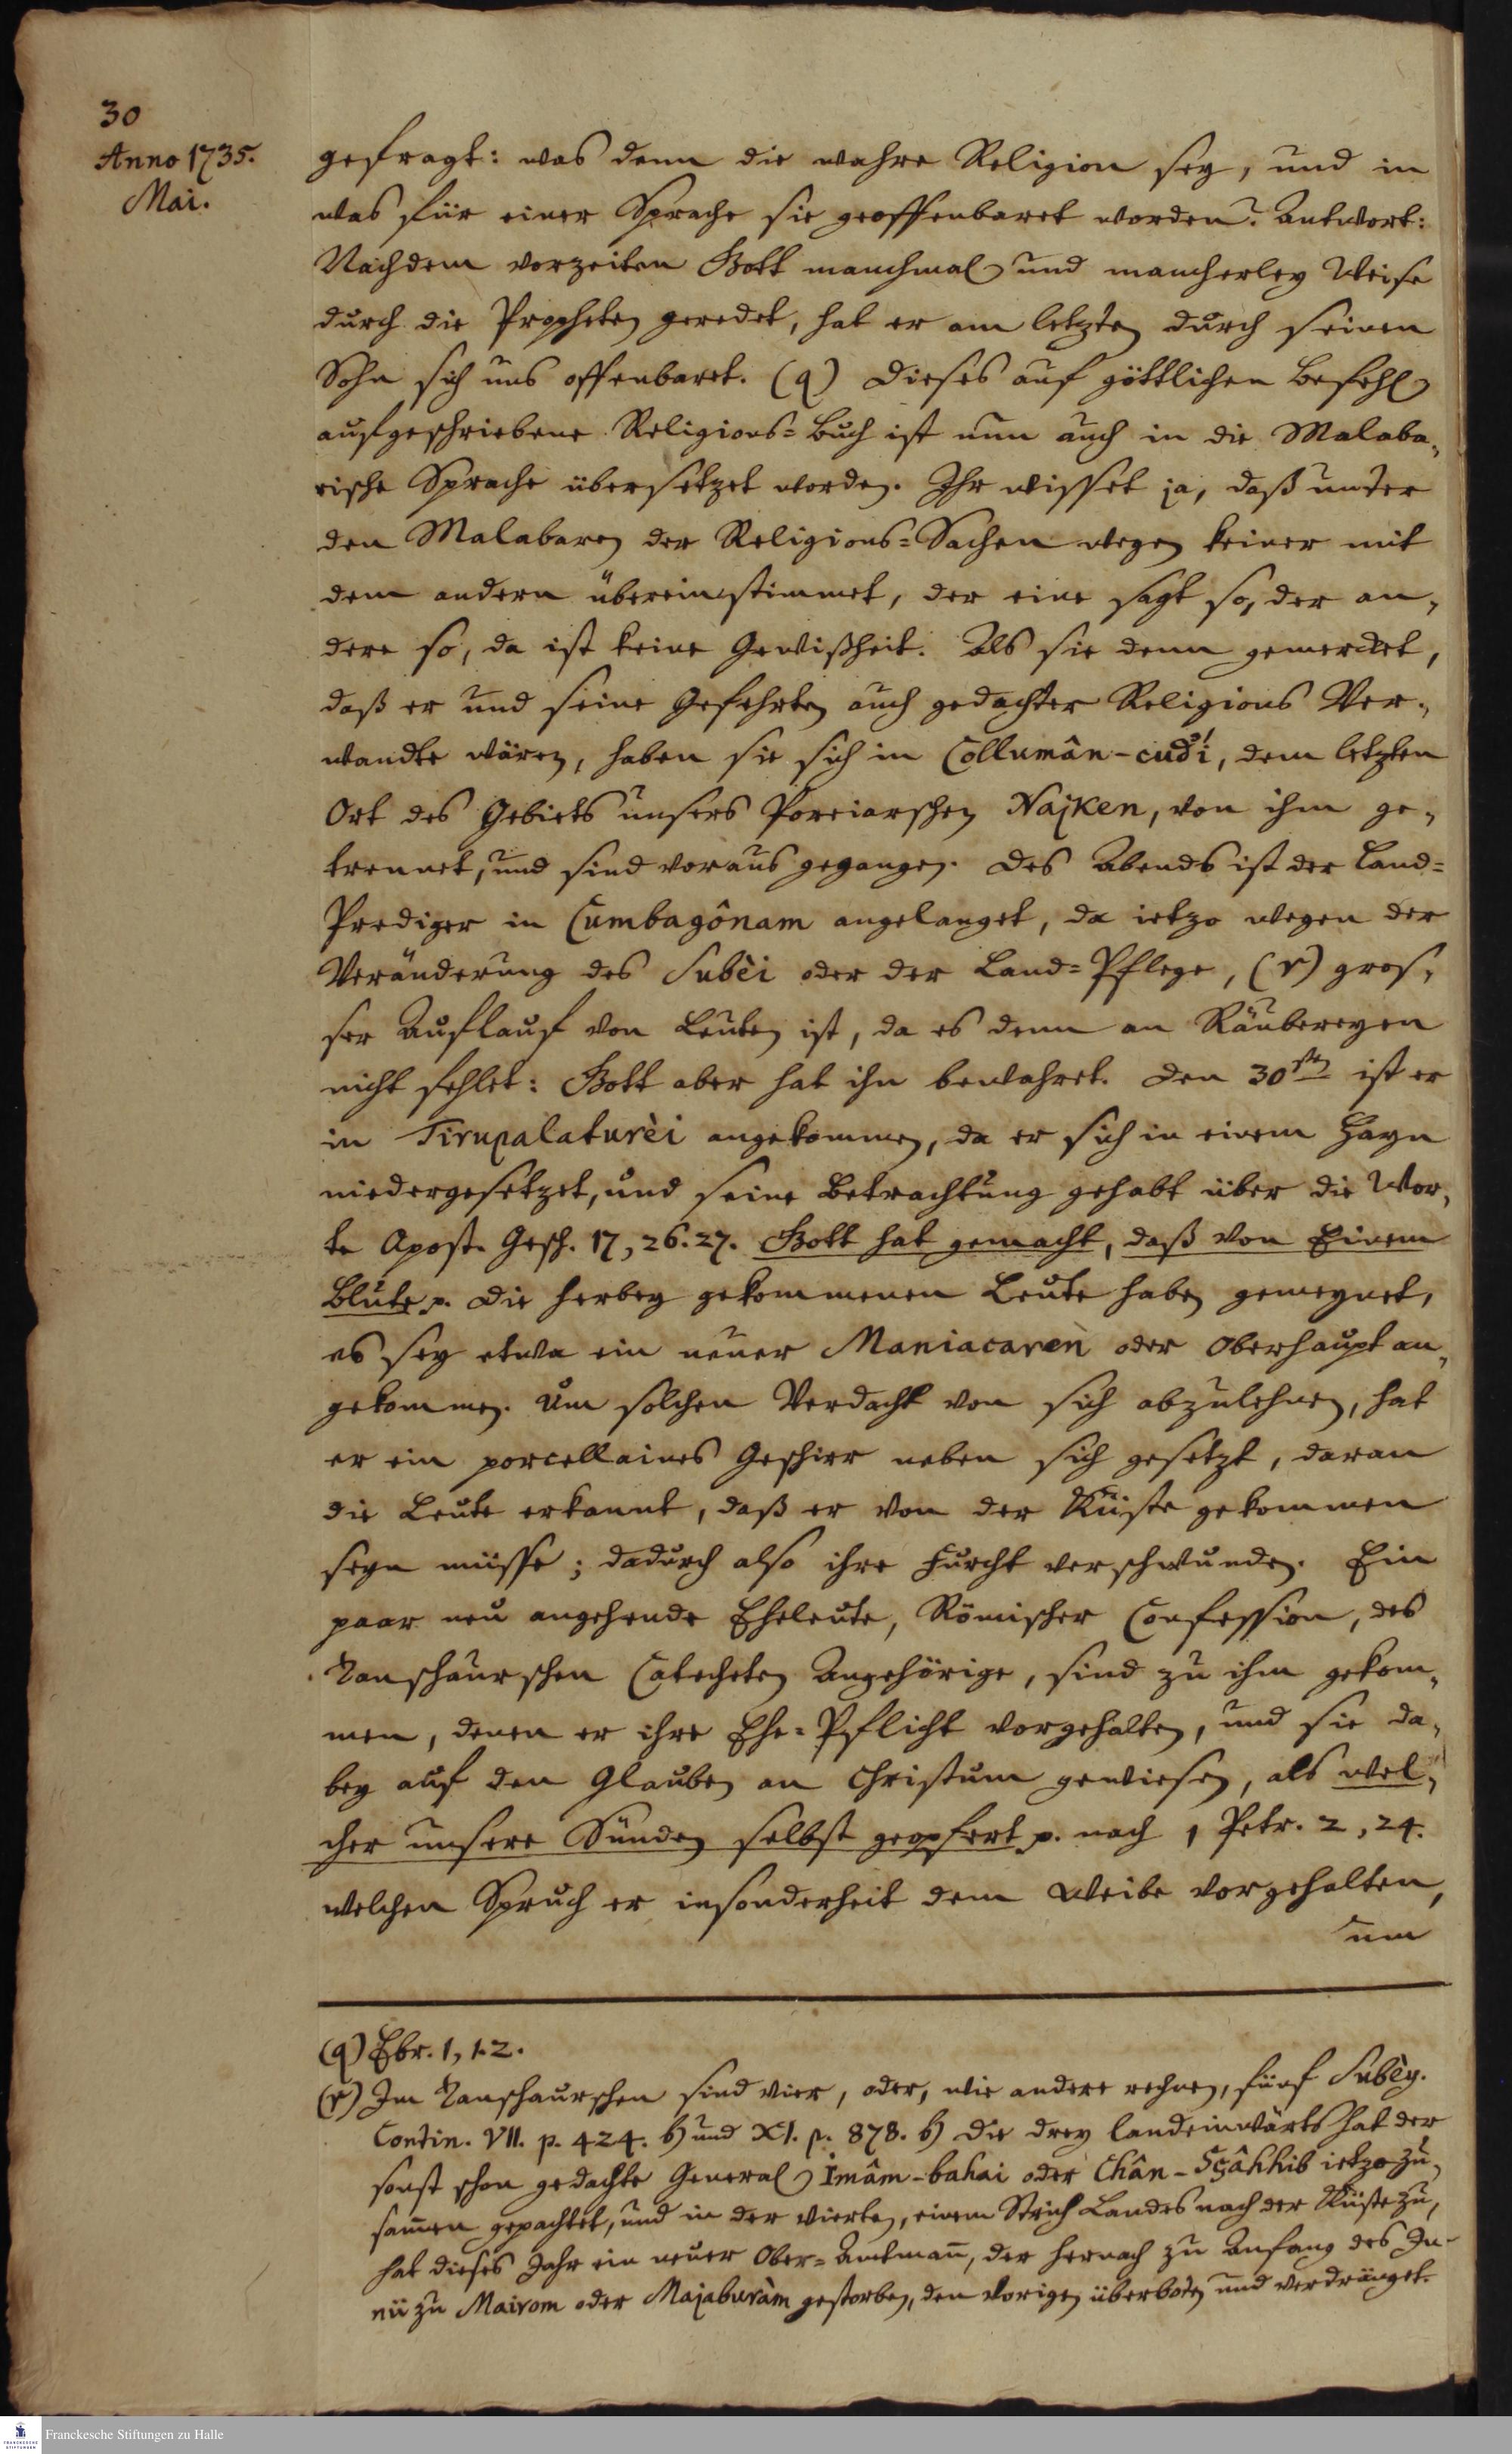 30
Anno 1735.
Mai.
gefragt: was denn die wahre Religion sey, und in
was für einer Sprache sie geoffenbaret worden? Antwort:
Nachdem vorzeiten Gott manchmal und mancherley Weise
durch die Propheten geredet, hat er am letzten durch seinen
Sohn sich uns offenbaret. (q) Dieses auf göttlichen Befehl
aufgeschriebene Religions=Buch ist nun auch in die Malaba,
rische Sprache übersetzet worden. Ihr wisset ja, daß unter
den Malabaren der Religions=Sachen wegen keiner mit
dem andern übereinstimmet, der eine sagt so, der an,
dere so, da ist keine Gewißheit. Als sie denn gemercket,
daß er und seine Gefehrten auch gedachter Religions Ver,
wandte wären, haben sie sich in Collumân-cudi, dem letzten
Ort des Gebiets unsers Poreiarschen Najken, von ihm ge,
trennet, und sind voraus gegangen. Des Abends ist der Land=
Prediger in Cumbagônam angelanget, da ietzo wegen der
Veränderung des Subèi oder der Land=Pflege, (r) gros,
ser Auflauf von Leuten ist, da es denn an Räubereyen
nicht fehlet: Gott aber hat ihn bewahret. Den 30sten ist er
in Tirupalaturèi angekommen, da er sich in einem Hayn
niedergesetzet, und seine Betrachtung gehabt über die Wor,
te Apost. Gesch. 17, 26. 27. Gott hat gemacht, daß von Einem
Blute p. Die herbey gekommenen Leute haben gemeynet,
es sey etwa ein neuer Maniacaren oder Oberhaupt an,
gekommen. Um solchen Verdacht von sich abzulehnen, hat
er ein porcellaines Geschirr neben sich gesetzt, daran
die Leute erkannt, daß er von der Küste gekommen
seyn müsse; dadurch also ihre Furcht verschwunden. Ein
paar neu angehende Eheleute, Römischer Confession, des
Tanschaurschen Catecheten Angehörige, sind zu ihm gekom,
men, denen er ihre Ehe=Pflicht vorgehalten, und sie da,
bey auf den Glauben an Christum gewiesen, als wel,
cher unsere Sünden selbst geopfert p. nach 1 Petr. 2, 24.
welchen Spruch er insonderheit dem Weibe vorgehalten,
um
(q) Ebr. 1, 1. 2.
(r) Im Tanschaurschen sind vier, oder, wie andere rechnen, fünf Subèy.
Contin. VII. p. 424. b) und XI. p. 878. b) Die drey landeinwärts hat der
sonst schon gedachte General Imâm-bahai oder Chân-Sçâhhib ietzo zu,
samen gepachtet, und in der vierten, einem Strich Landes nach der Küste zu,
hat dieses Jahr ein neuer Ober=Amtmañ, der hernach zu Anfang des Ju-
nii zu Mairom oder Majaburàm gestorben, den vorigen überboten und verdränget.
Franckesche Stiftungen zu Halle